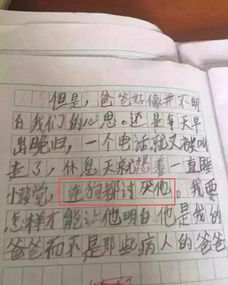 但是，爸爸好像并不明
白我们的心思。还是每天早
出晚归，一个电话就又被叫
走了，休息天就想着一直睡
小睡觉，连狗都讨厌他。我要
怎样才能让他明白他是我的
爸爸而不是那些病人的爸爸